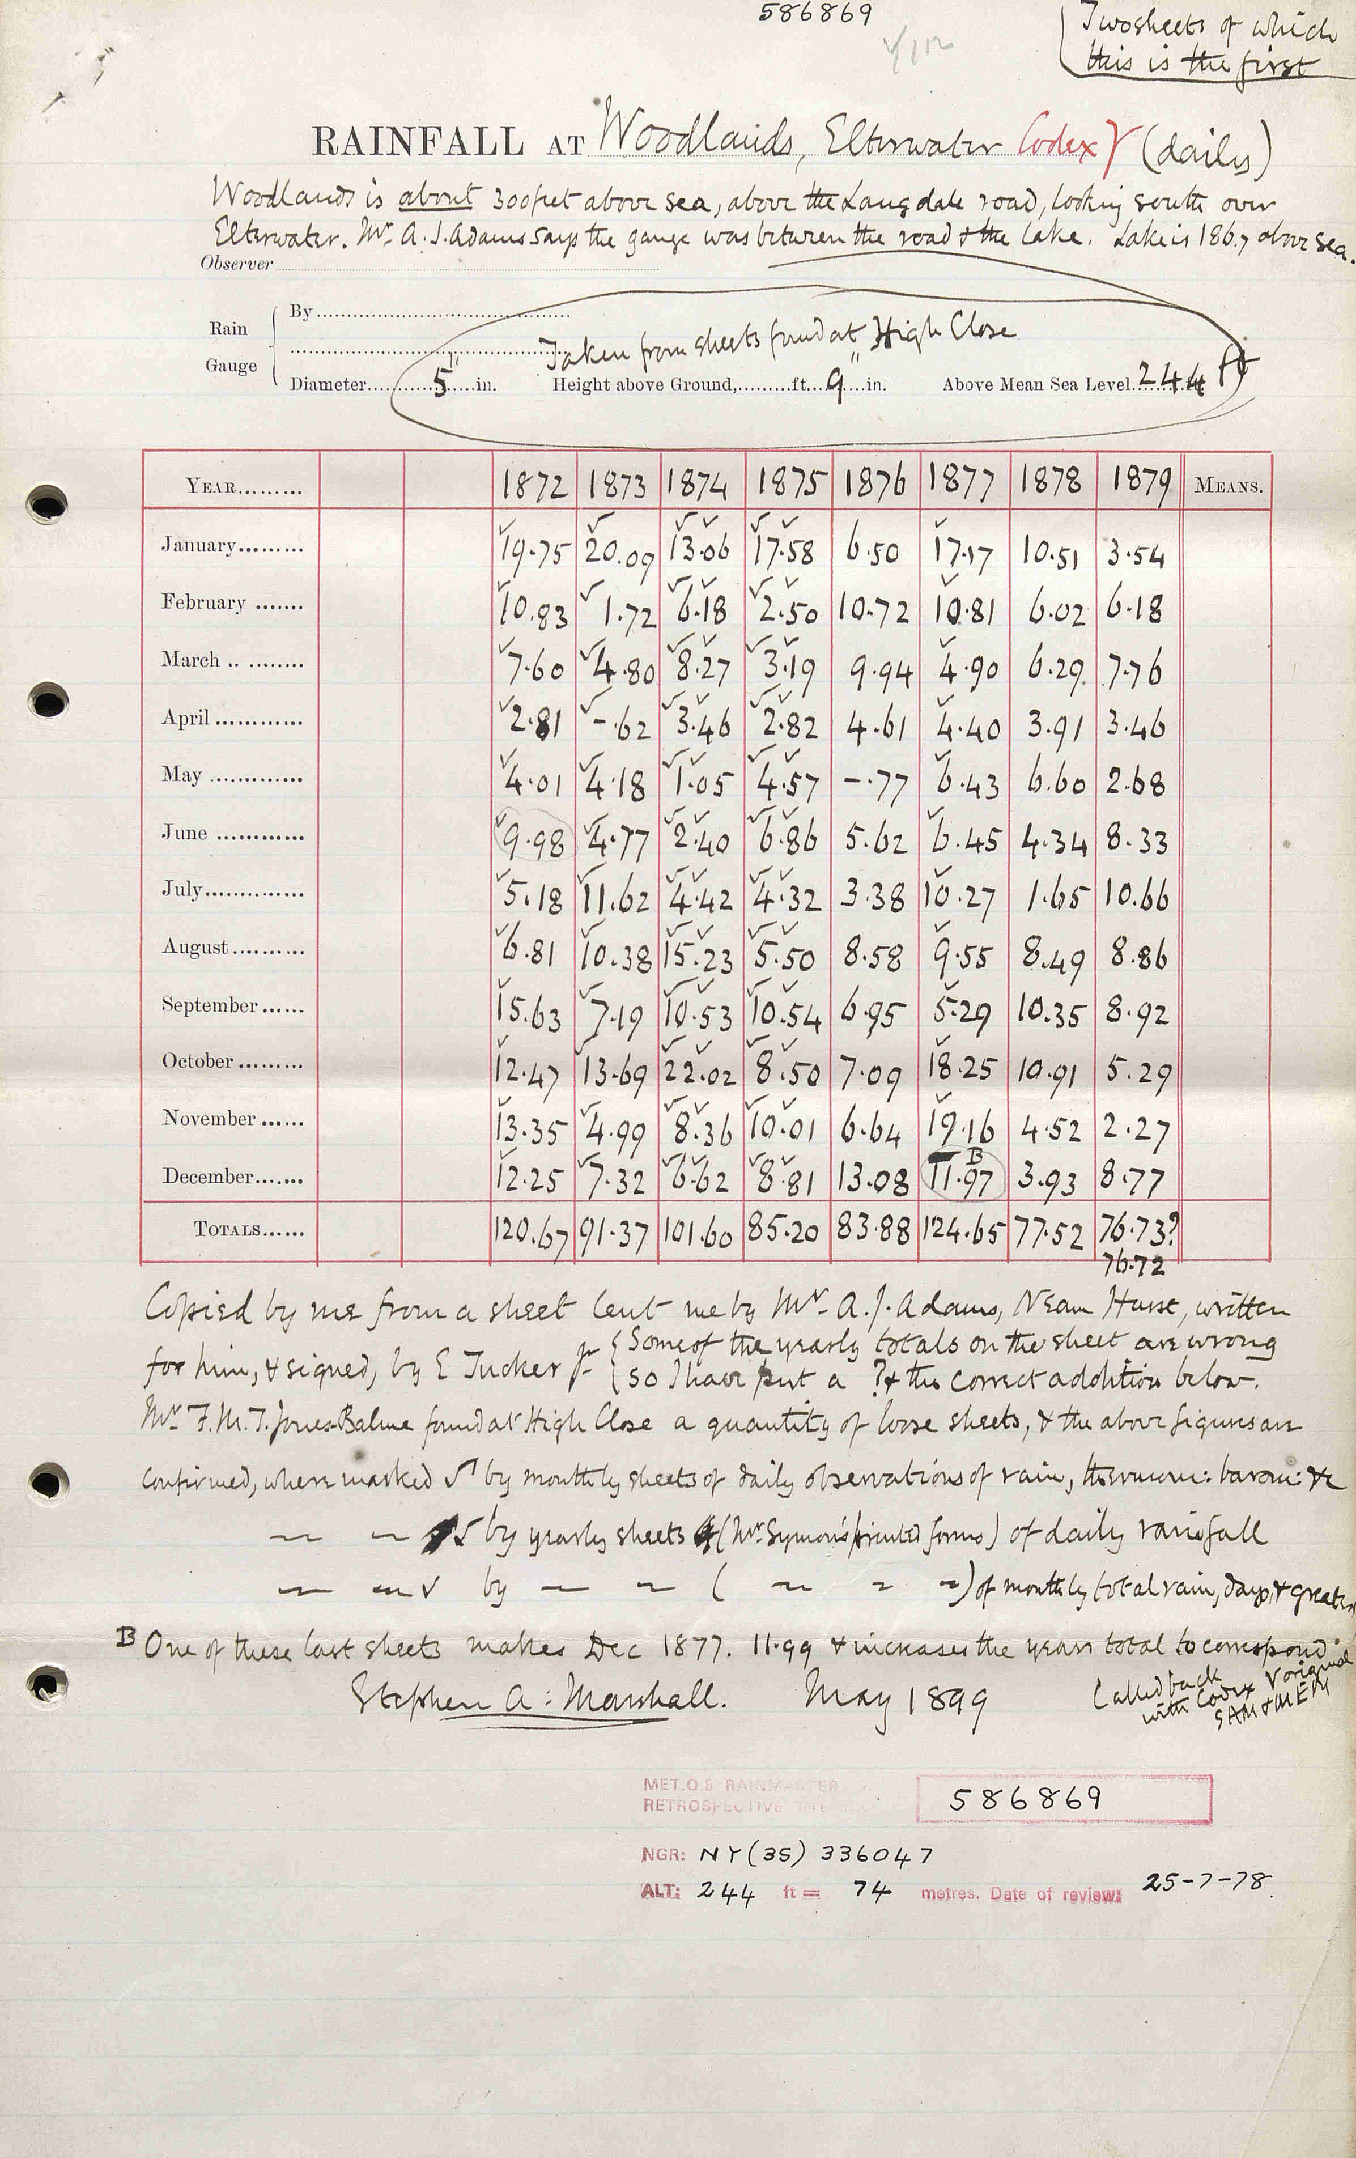 586869
Two sheets of which
this is the first
RAINFALL AT Woodlands, Elterwater Codex γ (daily)
Woodlands is about 300 feet above sea, above the Langdale road, looking south over
Elterwater. Mr. A. J. Adams says the gauge was between the road & the lake. Lake is 186.7 above sea.
Observer
Rain Gauge
By
Taken from sheets found at High Close
Diameter 5" in. Height above Ground, ft. 9" in. Above Mean Sea Level. 244 ft
YEAR 1872 1873 1874 1875 1876 1877 1878 1879 MEANS.
January 19.75 20.09 13.06 17.58 6.50 17.17 10.51 3.54
February 10.83 1.72 6.18 2.50 10.72 10.81 6.02 6.18
March 7.60 4.80 8.27 3.19 9.94 4.90 6.29 7.76
April 2.81 -.62 3.46 2.82 4.61 4.40 3.91 3.46
May 4.01 4.18 1.05 4.57 -.77 6.43 6.60 2.68
June 9.98 4.77 2.40 6.86 5.62 6.45 4.34 8.33
July 5.18 11.62 4.42 4.32 3.38 10.27 1.65 10.66
August 6.81 10.38 15.23 5.50 8.58 9.55 8.49 8.86
September 15.63 7.19 10.53 10.54 6.95 5.29 10.35 8.92
October 12.47 13.69 22.02 8.50 7.09 18.25 10.91 5.29
November 13.35 4.99 8.36 10.01 6.64 19.16 4.52 2.27
December 12.25 7.32 6.62 8.81 13.08 11.97 B 3.93 8.77
TOTALS 120.67 91.37 101.60 85.20 83.88 124.65 77.52 76.73?
76.72
Copied by me from a sheet lent me by Mr. A. J. Adams, Neam Hurst, written
for him, & signed, by E Tucker Jr { Some of the yearly totals on the sheet are wrong
so I have put a ? & the correct addition below.
Mr F. M. T. Jones-Balme found at High Close a quantity of loose sheets, & the above figures are
confirmed, where marked ✓ by monthly sheets of daily observations of rain, thermom: barom: &c
— — ✓ by yearly sheets (Mr. Symons's printed forms) of daily rainfall
— — ✓ by — — ( — — —) of monthly total rain, days, & greatest
B One of these last sheets makes Dec 1877. 11.99 & increases the years total to correspond.
Stephen A: Marshall. May 1899
Called back
with Codex γ original
SAM & MEM
MET.O.8 RAINMASTER
RETROSPECTIVE
586869
NGR: NY (35) 336047
ALT: 244 ft = 74 metres. Date of review: 25-7-78.